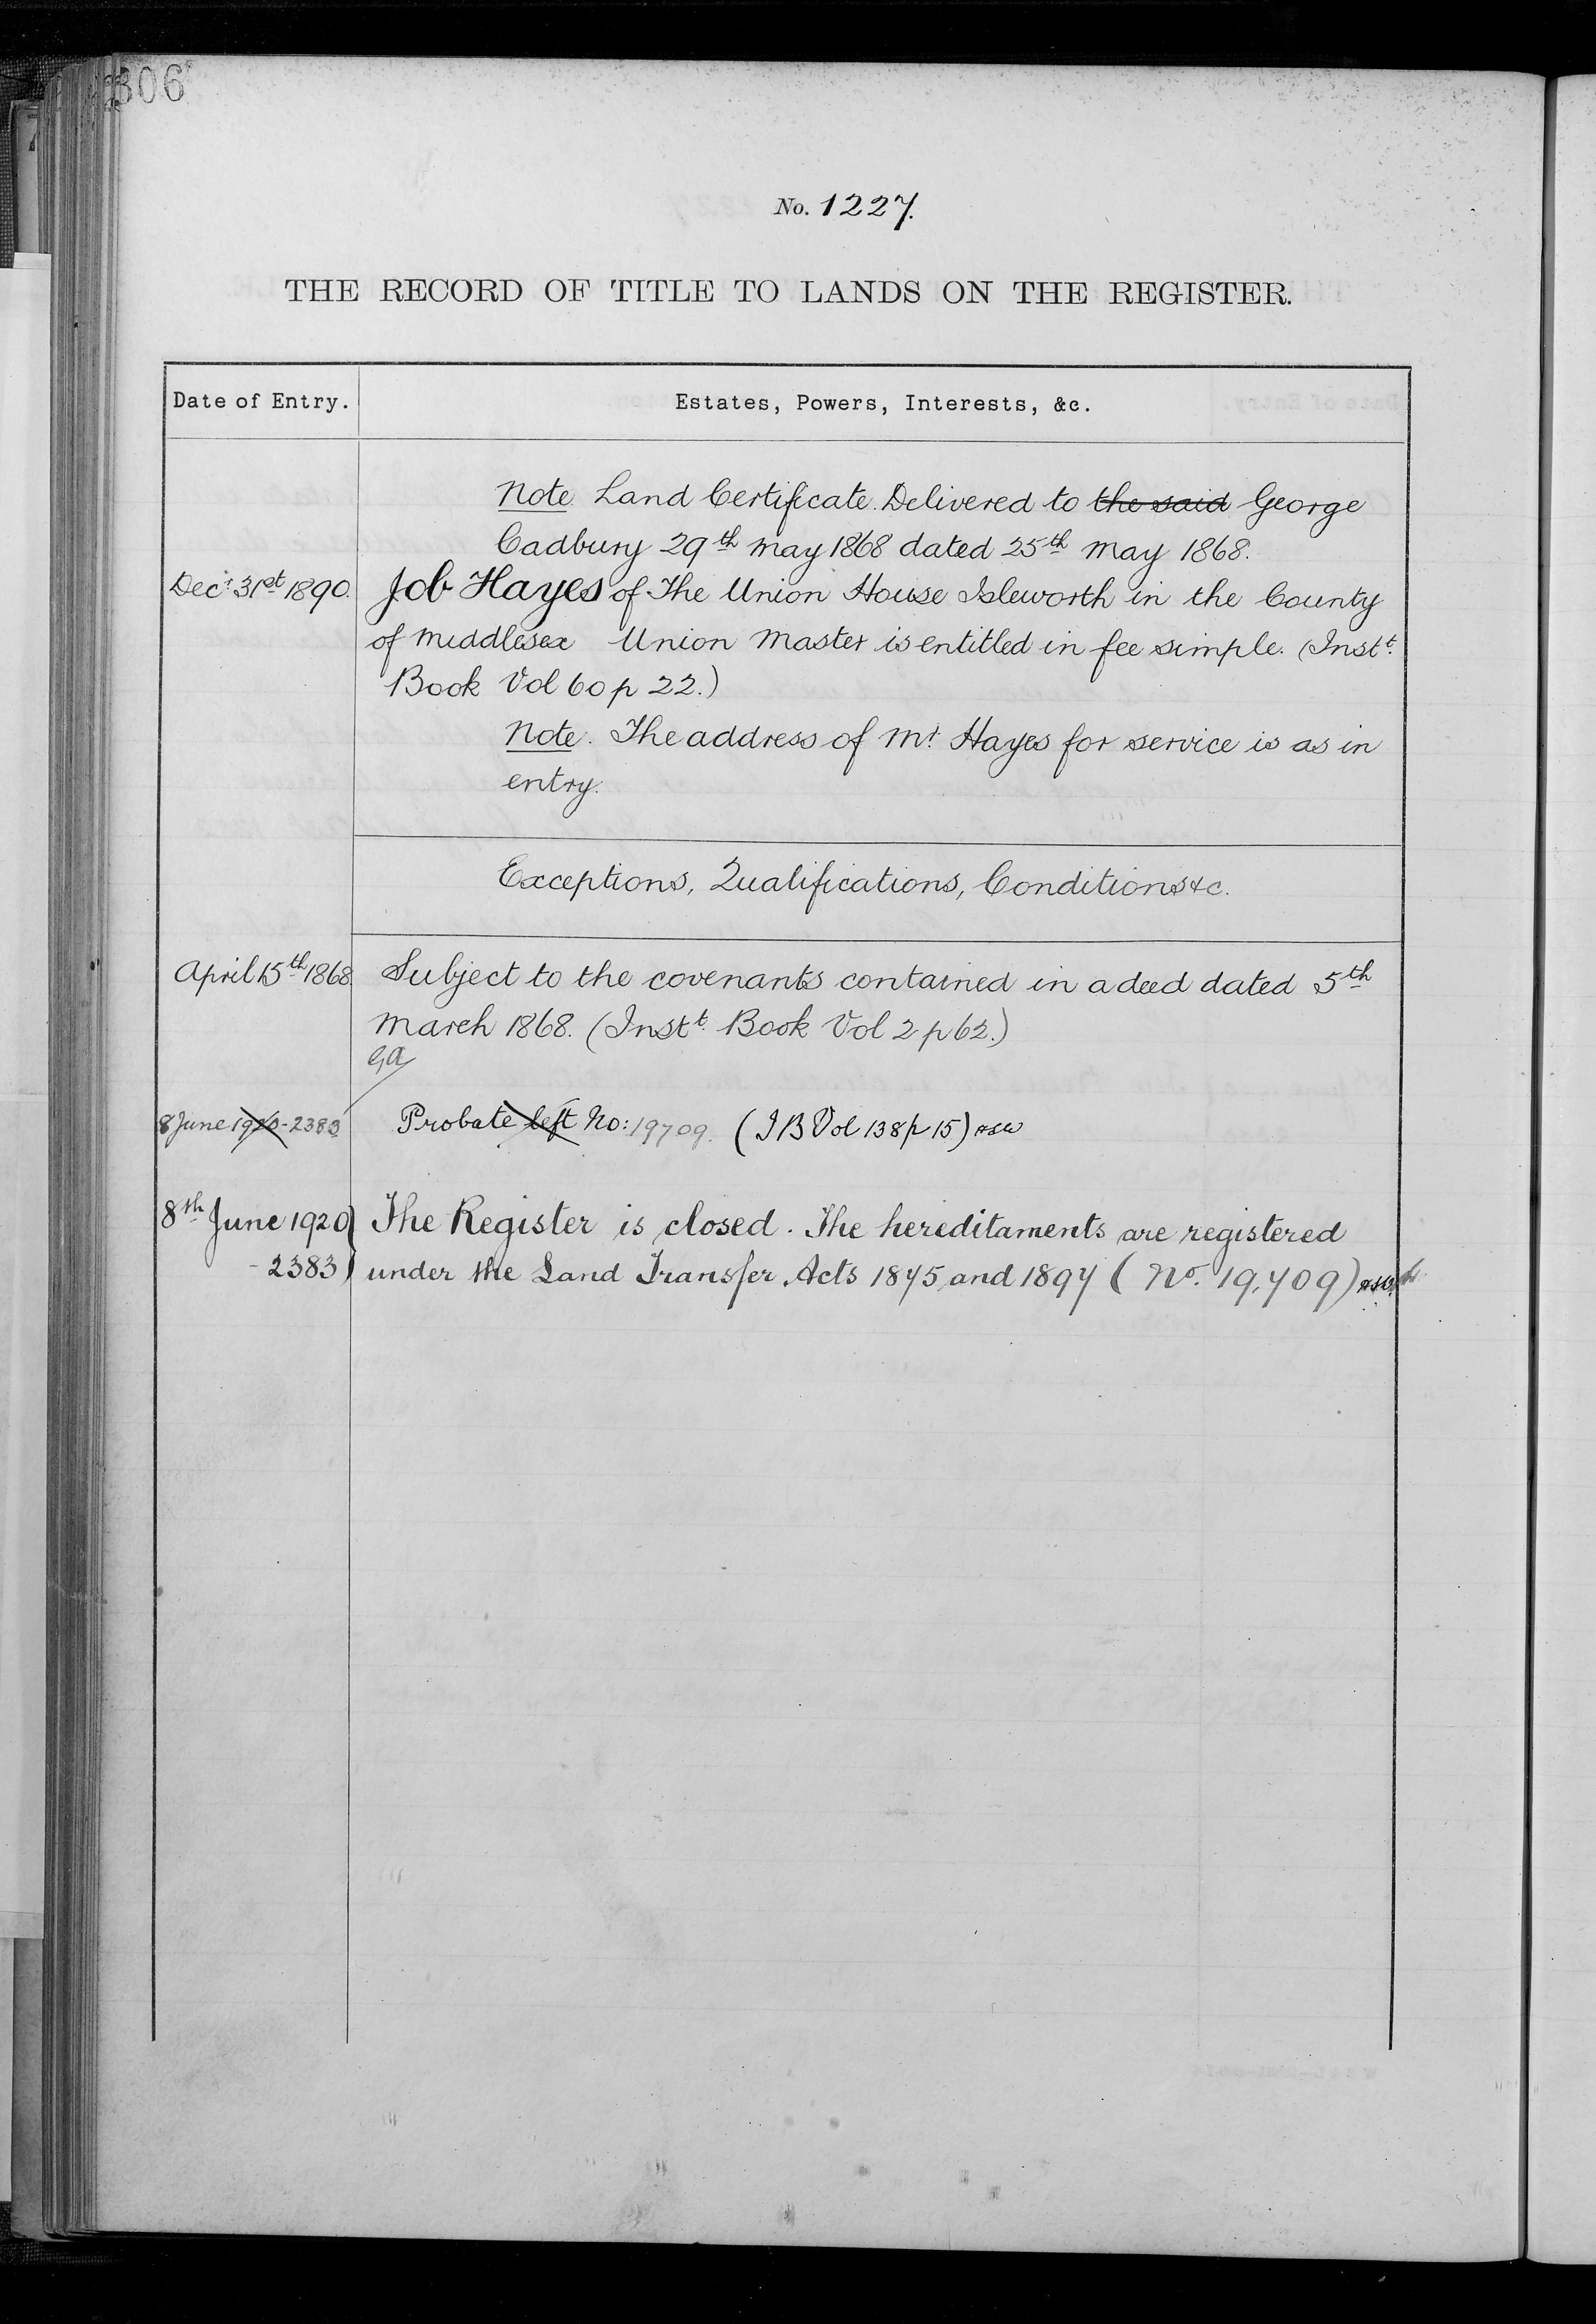 306
No. 1227.
THE RECORD OF TITLE TO LANDS ON THE REGISTER.
Date of Entry. Estates, Powers, Interests, &c.
Note. Land Certificate Delivered to the said George
Cadbury 29th May 1868 dated 25th May 1868.
Decr 31st 1890. Job Hayes of The Union House Isleworth in the County
of Middlesex Union Master is entitled in fee simple. (Instt.
Book Vol 60 p 22.)
Note. The address of Mr. Hayes for service is as in
entry.
Exceptions, Qualifications, Conditions &c.
April 15th 1868. Subject to the covenants contained in a deed dated 5th
March 1868. (Instt. Book Vol 2 p 62.)
8 June 1920-2383 Probate left No: 19709. (I B Vol 138 p 15)
8th June 1920 The Register is closed. The hereditaments are registered
- 2383 under the Land Transfer Acts 1875 and 1897 (No. 19,709)